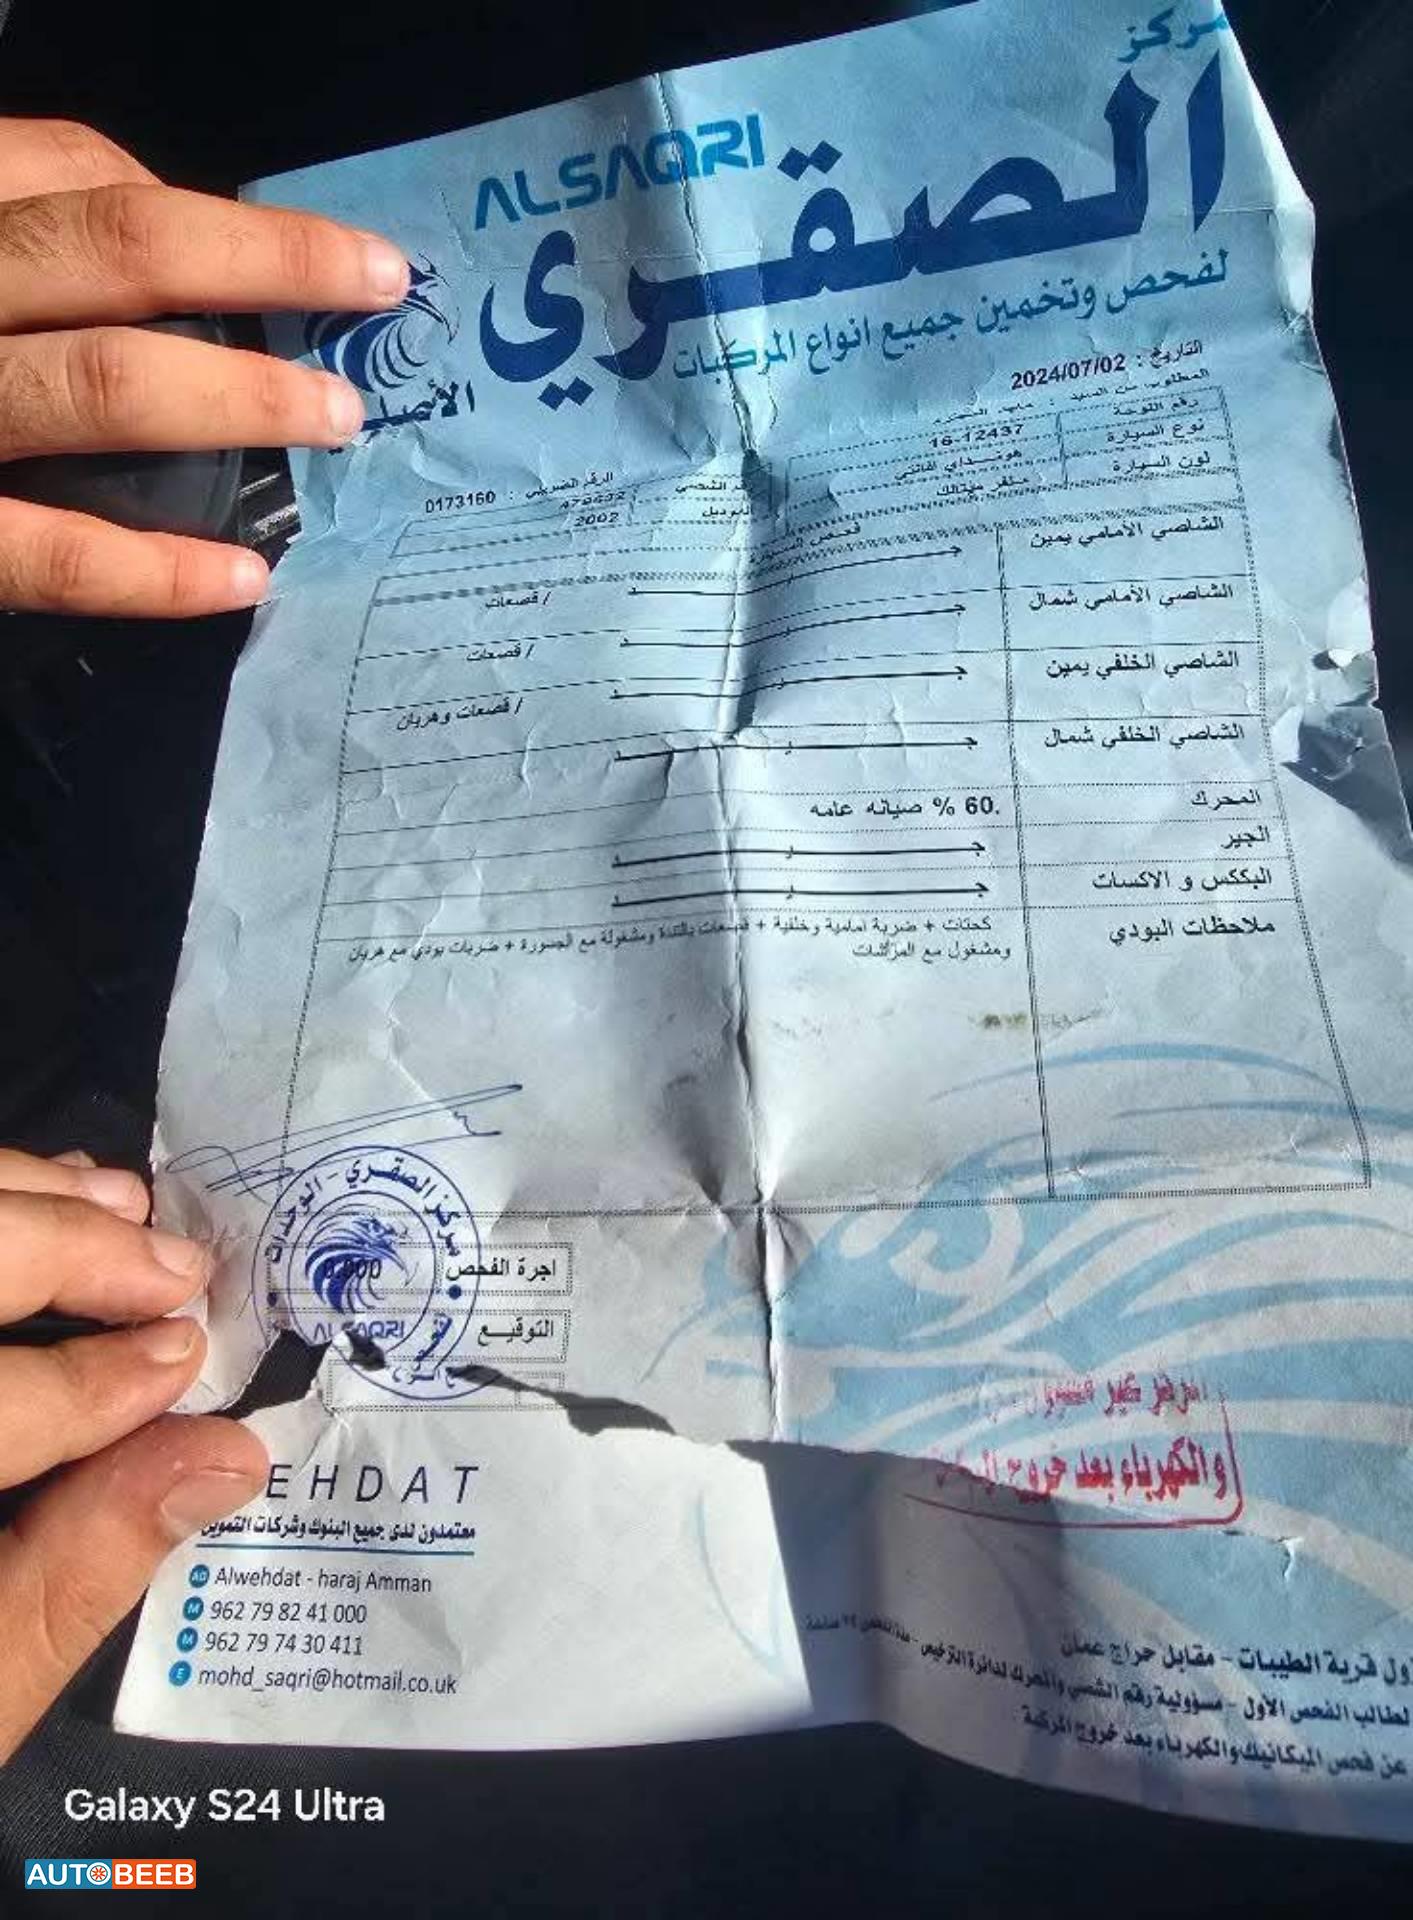 مركز
ALSAQRI
الصقري
الأصلي
لفحص وتخمين جميع انواع المركبات
التاريخ : 2024/07/02
المطلوب من السيد :
الرقم الضريبي : 0173160
رقم اللوحة 16-12437
نوع السيارة هونداي افانتي
لون السيارة
الموديل 2002
فحص السيارة
الشاصي الأمامي يمين جـــيـــد / قصعات
الشاصي الأمامي شمال جـــيـــد / قصعات
الشاصي الخلفي يمين جـــيـــد / قصعات وهريان
الشاصي الخلفي شمال جـــيـــد
المحرك 60 % صيانه عامه.
الجير جـــيـــد
البككس و الاكسات جـــيـــد
ملاحظات البودي كحتات + ضربة امامية وخلفية + قصعات بالتندة ومشغولة مع الجسورة + ضربات بودي مع هريان
ومشغول مع المرآشات
مركز الصقري - الوحدات
ALSAQRI
اجرة الفحص 0.000
التوقيـع
والكهرباء بعد خروج
EHDAT
معتمدون لدى جميع البنوك وشركات التمويل
Alwehdat - haraj Amman
962 79 82 41 000
962 79 74 30 411
mohd_saqri@hotmail.co.uk
قرية الطيبات - مقابل حراج عمان
لطالب الفحص الأول - مسؤولية رقم الشصي والمحرك لدائرة الترخيص - مدة الفحص ٢٤ ساعة
عن فحص الميكانيك والكهرباء بعد خروج المركبة
Galaxy S24 Ultra
AUTOBEEB